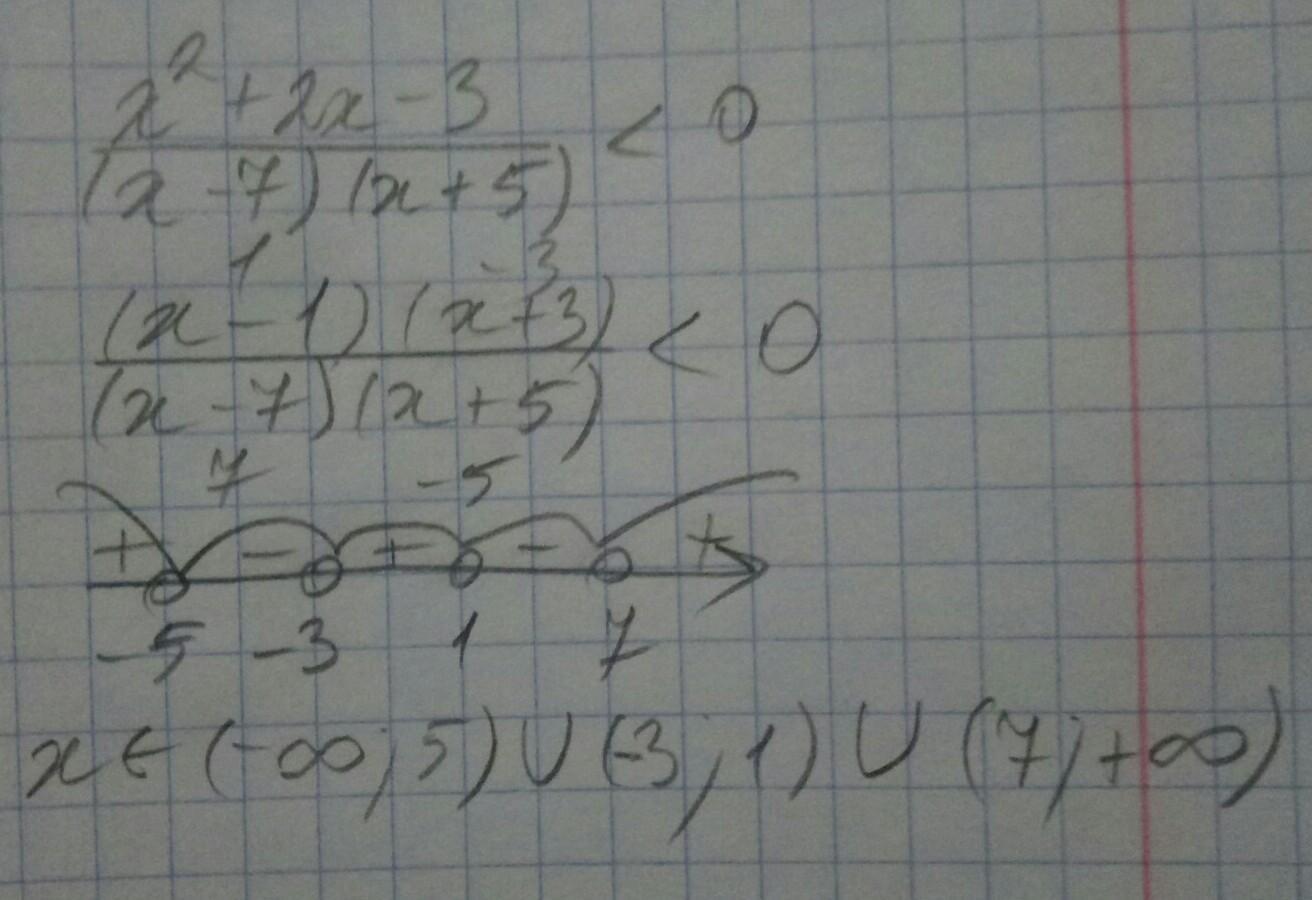 x² + 2x - 3
(x - 7) (x + 5) < 0
1 -3
(x - 1) (x + 3)
(x - 7) (x + 5) < 0
7 -5
+ - + - +
-5 -3 1 7
x ∈ (-∞; 5) ∪ (-3; 1) ∪ (7; +∞)